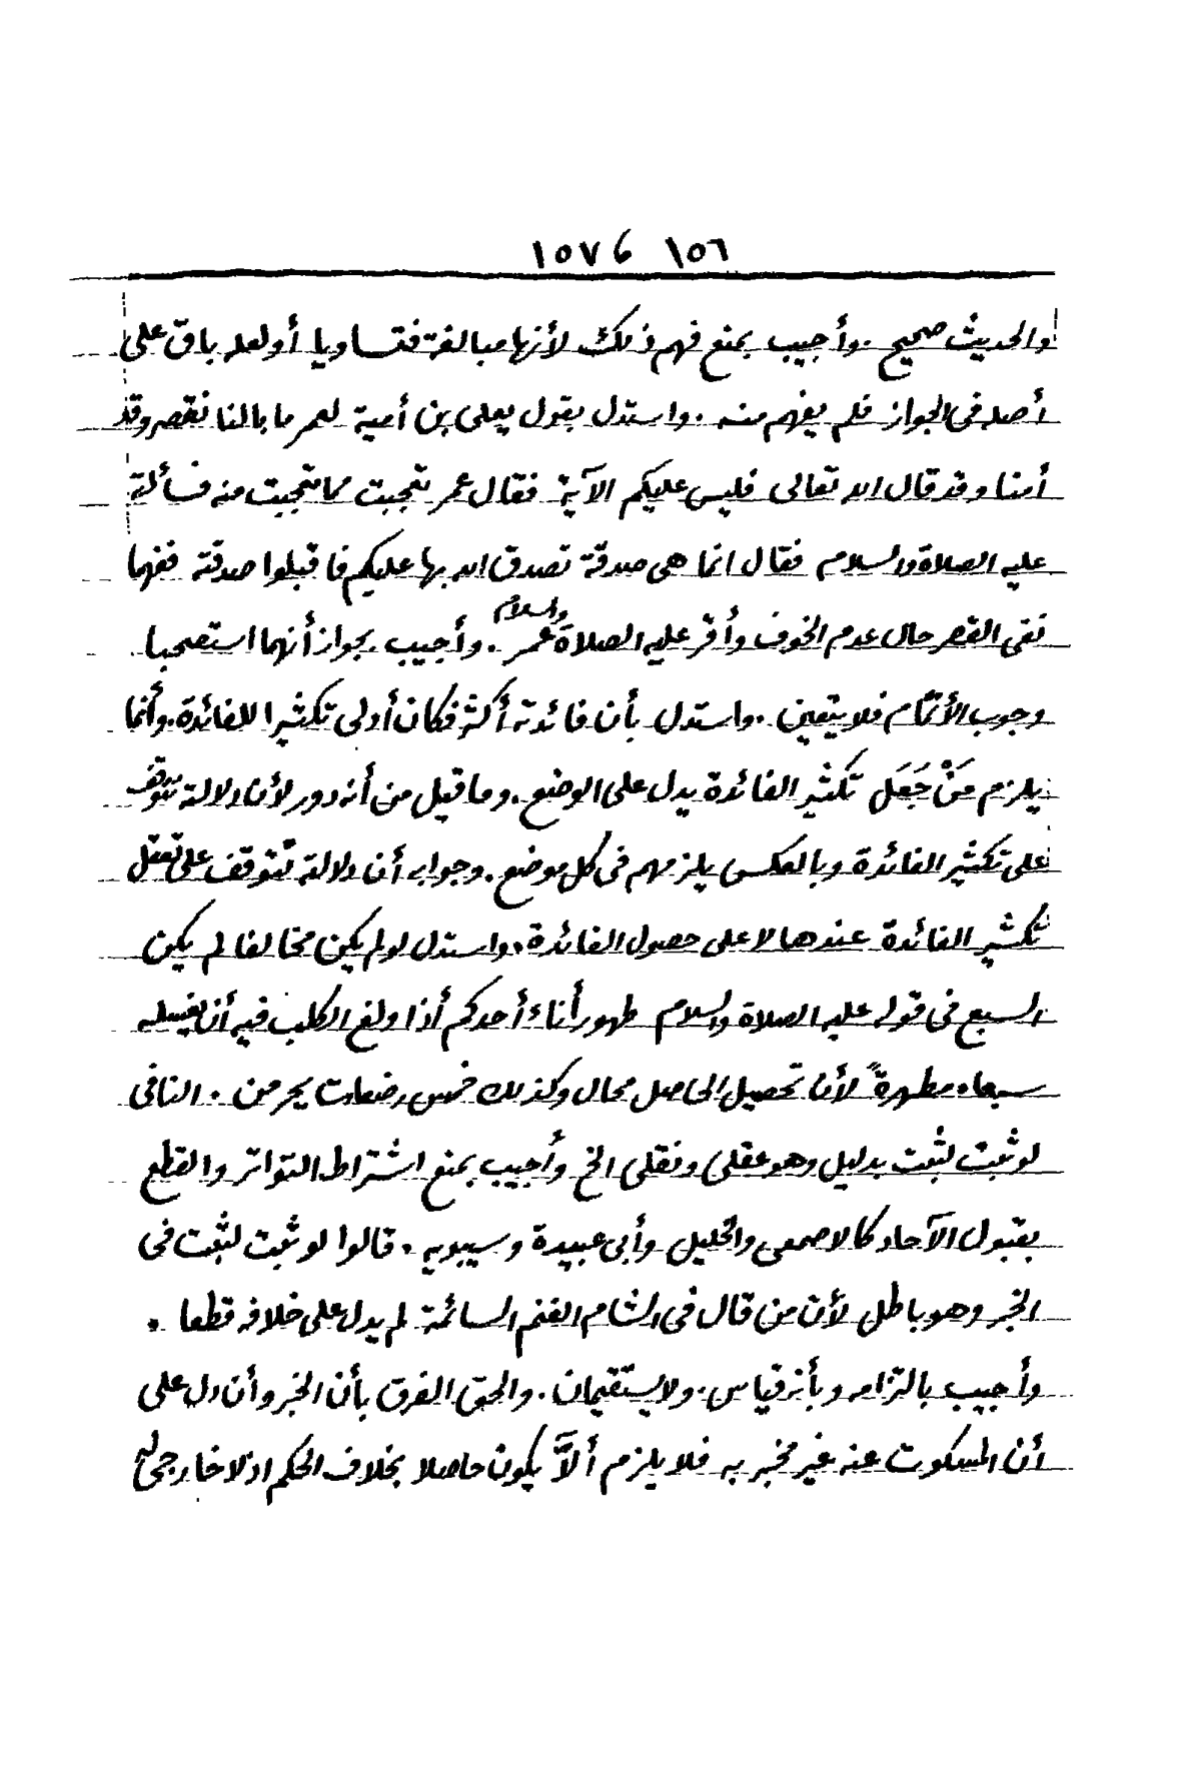 ١٥٦ ١٥٧٦
والحديث صحيح . وأجيب بمنع فهم ذلك لأنها مبالغة فتساويا أو لعله باق على
أصله فى الجواز فلم يفهم منه . واستدل بقول يعلى بن أمية لعمر ما بالنا نقصر وقد
أمنا وقد قال الله تعالى فليس عليكم الآية فقال عمر تعجبت مما تعجبت منه فسألته
عليه الصلاة والسلام فقال انما هى صدقة تصدق الله بها عليكم فاقبلوا صدقته ففهما
نفى القصر حال عدم الخوف وأقر عليه الصلاة والسلام عمر . وأجيب بجواز أنهما استصحبا
وجوب الأتمام فلا يتعين . واستدل بأن فائدته أكثر فكان أولى تكثيرا للفائدة . وأنما
يلزم مَنْ جَعَل تكثير الفائدة يدل على الوضع . وما قيل من أنه دور لأن دلالته تتوقف
على تكثير الفائدة وبالعكس يلزمهم فى كل موضع . وجوابه أن دلالته تتوقف على تعقل
تكثير الفائدة عندها لا على حصول الفائدة . واستدل لو لم يكن مخالفا لم يكن
السبع فى قوله عليه الصلاة والسلام طهور أناء أحدكم أذا ولغ الكلب فيه أن يغسله
سبعا . مطهرةً لأن تحصيل الحاصل محال وكذلك خمس رضعات يحرمن . النافى
لو ثبت لثبت بدليل وهو عقلى ونقلى الخ وأجيب بمنع اشتراط التواتر والقطع
بقبول الآحاد كالاصمعى والخليل وأبى عبيدة وسيبويه . قالوا لو ثبت لثبت فى
الخبر وهو باطل لأن من قال فى الشام الغنم السائمة لم يدل على خلافه قطعا .
وأجيب بالتزامه وبأنه قياس . ولا يستقيمان . والحق الفرق بأن الخبر وأن دل على
أن المسكوت عنه غير مخبر به فلا يلزم ألاَّ يكون حاصلا بخلاف الحكم اذ لا خارجى له